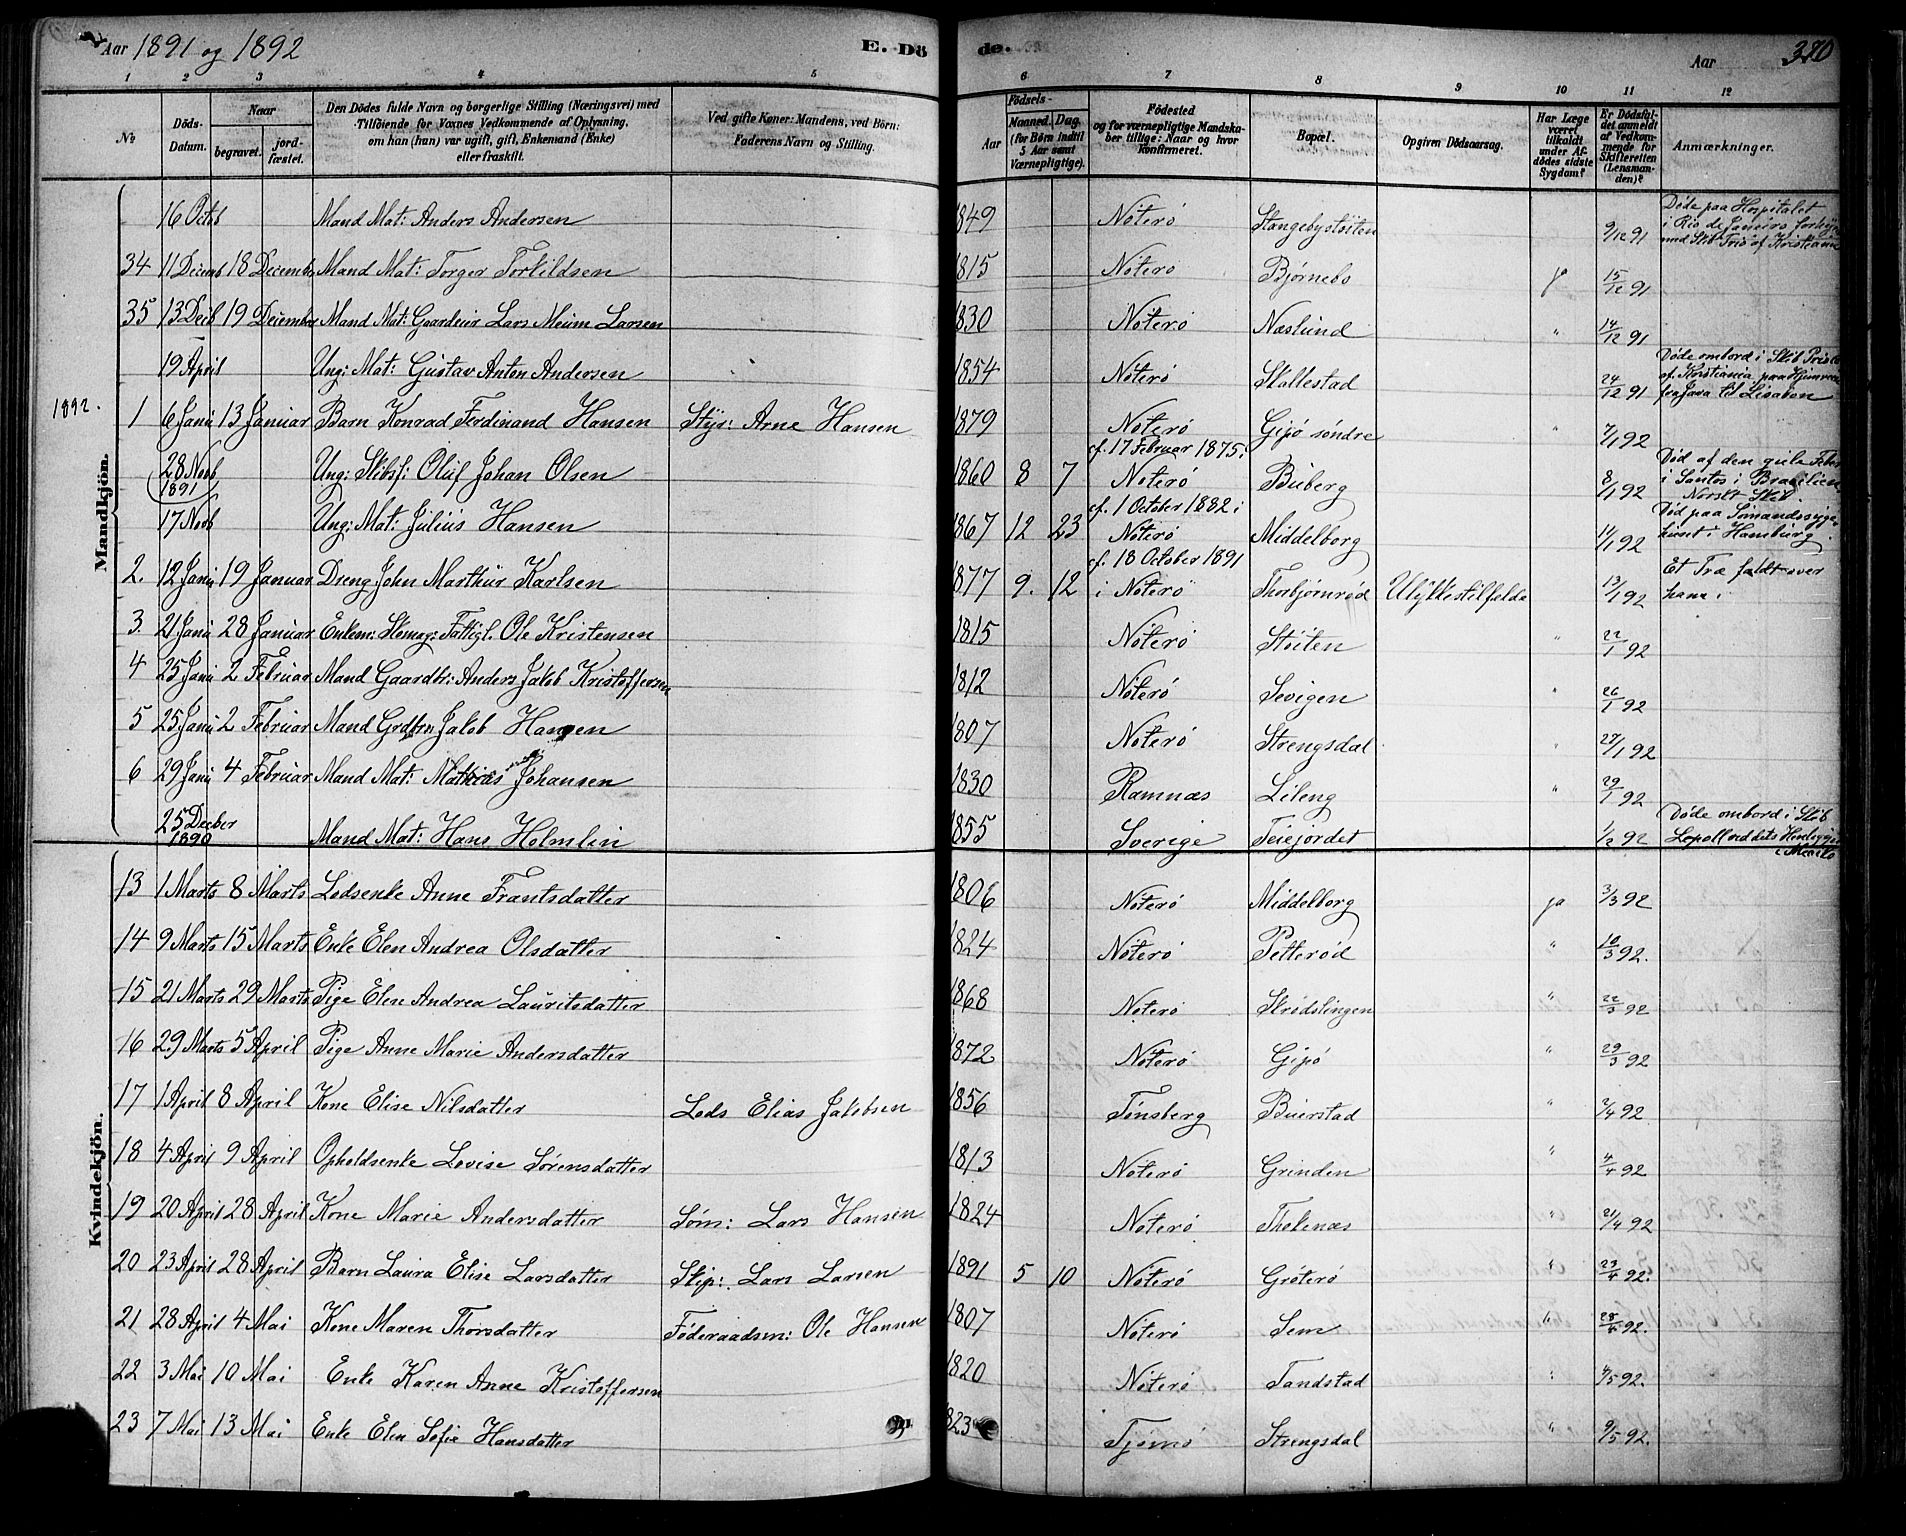 Aar 1891 og 1892 E. Dö de. Aar 320
1 2 3 4 5 6 7 8 9 10 11 12
No
Döds-Datum.
Naar
begravet.
jord-fæstet.
Den Dödes fulde Navn og borgerlige Stilling (Næringsvei) med
Tilföiende for Voxnes Vedkommende af Oplysning,
om han (hun) var ugift, gift, Enkemand (Enke)
eller fraskilt.
Ved gifte Koner: Mandens, ved Börn:
Faderens Navn og Stilling.
Födsels-
Aar Maaned. Dag.
(for Börn indtil
5 Aar samt
Værnepligtige).
Födested
og for værnepligtige Mandska-
ber tillige: Naar og hvor
konfirmeret.
Bopæl.
Opgiven Dödsaarsag.
Har Læge
været
tilkaldt
under Af-
dödes sidste
Sygdom?
Er Dödsfal-
det anmeldt
af Vedkom-
mende for
Skifteretten
(Lensman-
den)?
Anmærkninger.
Mandkjön.
16 Octob Mand Mat: Anders Andersen 1849 Nøterø Stangebystøiten 9/12 91 Døde paa Hospitalet i Rio de Janeiro med Skib Trio af Kristiania
34 11 Decemb 18 December Mand Mat: Torger Torkildsen 1815 Nøterø Bjørnebo 15/12 91
35 13 Decb 19 December Mand Mat: Gaardeier Lars Meum Larsen 1830 Nøterø Næslund " 14/12 91
19 April Ung: Mat: Gustav Anton Andersen 1854 Nøterø Skallestad 24/12 91 Døde ombord i Skib af Kristiania paa Hjemreise fra Java til Lisabon
1892.
1 6 Janu 13 Januar Barn Konrad Ferdinand Hansen Styr: Arne Hansen 1879 Nøterø Gipø søndre " 7/1 92
28 Novb 1891 Ung: Skibsf: Oluf Johan Olsen 1860 8 7 cf. 17 Februar 1875 i Nøterø Buberg 8/1 92 Død af den gule Feber i Santos i Brasilien Norsk Skib.
17 Novb Ung: Mat: Julius Hansen 1867 12 23 cf. 1 October 1882 i Nøterø Middelborg 11/1 92 Død paa Sømandssygehuset i Hamburg.
2. 12 Janu 19 Januar Dreng John Marthur Karlsen 1877 9. 12 cf. 18 October 1891 i Nøterø Thorbjørnrød Ulykkestilfælde 13/1 92 Et Træ faldt over ham.
3. 21 Janu 28 Januar Enkem: Skomag: Fattigl. Ole Kristensen 1815 Nøterø Støiten " 22/1 92
4 25 Janu 2 Februar Mand Gaardbr: Anders Jakob Kristoffersen 1812 Nøterø Sevigen " 26/1 92
5 25 Janu 2 Februar Mand Grdbr Jakob Hansen 1807 Nøterø Strengsdal " 27/1 92
6 29 Janu 4 Februar Mand Mat: Mathias Johansen 1830 Ramnæs Lileng " 29/1 92
25 Decber 1890 Mand Mat: Hans Holmlin 1855 Sverige Teiejordet 1/2 92 Døde ombord i Skib
Kvindekjön.
13 1 Marts 8 Marts Lodsenke Anne Frantsdatter 1806 Nøterø Middelborg ja 3/3 92
14 9 Marts 15 Marts Enke Elen Andrea Olsdatter 1824 Nøterø Petterød " 10/3 92.
15 21 Marts 29 Marts Pige Elen Andrea Lauritsdatter 1868 Nøterø Skrødslingen " 22/3 92
16 29 Marts 5 April Pige Anne Marie Andersdatter 1872 Nøterø Gipø " 29/3 92
17 1 April 8 April Kone Elise Nilsdatter Lods Elias Jakobsen 1856 Tønsberg Buerstad " 2/4 92
18 4 April 9 April Opholdsenke Lovise Sørensdatter 1813 Nøterø Grinden " 4/4 92
19 20 April 28 April Kone Marie Andersdatter Søm: Lars Hansen 1824 Nøterø Tholenæs " 21/4 92
20 23 April 28 April Barn Laura Elise Larsdatter Skip: Lars Larsen 1891 5 10 Nøterø Grøterø " 23/4 92.
21 28 April 4 Mai Kone Maren Thorsdatter Føderaadsm: Ole Hansen 1807 Nøterø Sem " 28/4 92.
22 3 Mai 10 Mai Enke Karen Anne Kristoffersen 1820 Nøterø Tandstad " 4/5 92.
23 7 Mai 13 Mai Enke Elen Sofie Hansdatter 823 Tjømø Strengsdal " 9/5 92.